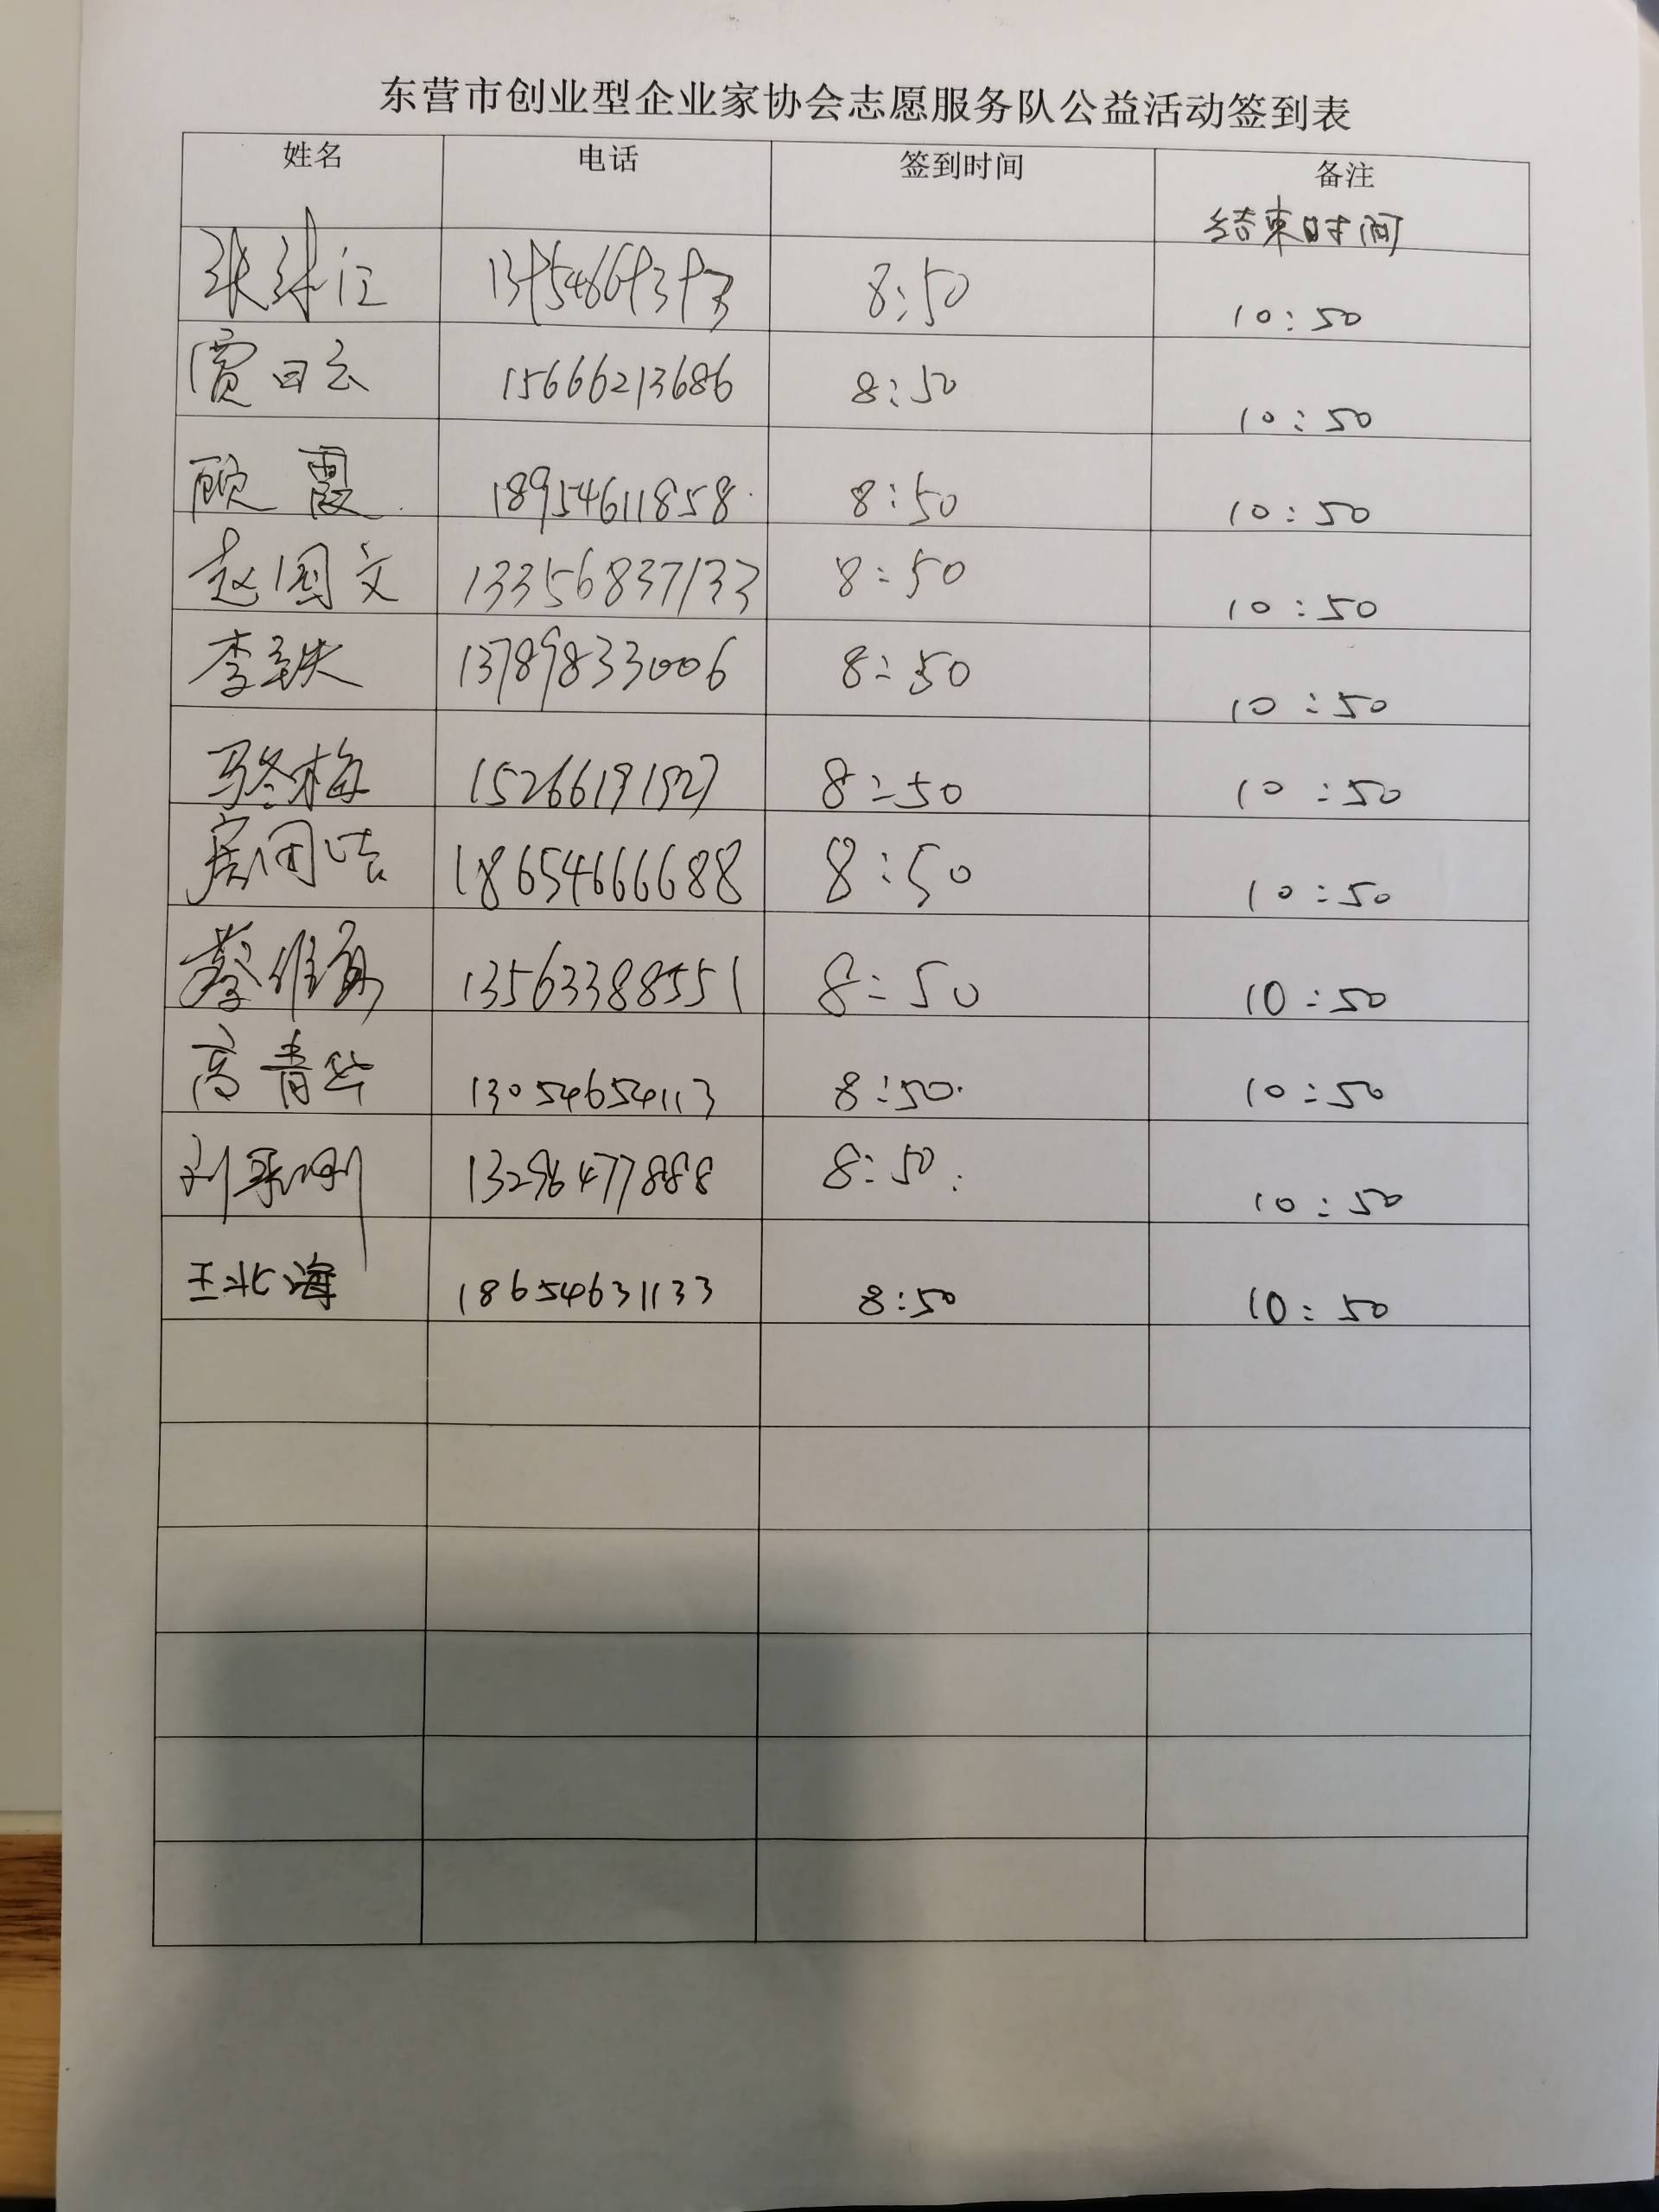 东营市创业型企业家协会志愿服务队公益活动签到表
姓名 电话 签到时间 备注
结束时间
8:50 10:50
贾曰云 15666213686 8:50 10:50
顾霞 18954611858 8:50 10:50
赵国文 13356837133 8:50 10:50
李铁 13789833006 8:50 10:50
马冬梅 15266191927 8:50 10:50
18654666688 8:50 10:50
蔡维 13563388551 8:50 10:50
高青华 13054654113 8:50 10:50
刘 13296477888 8:50 10:50
王北海 18654631133 8:50 10:50